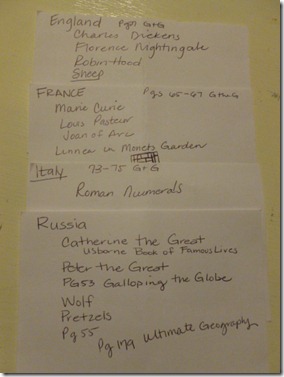 England
Charles Dickens
Florence Nightingale
Robin Hood
Sheep
FRANCE Pgs 65-67
Marie Curie
Louis Pasteur
Joan of Arc
Linnea in Monets Garden
Italy 73-75 GtG
Roman Numerals
Russia
Catherine the Great
Usborne Book of Famous Lives
Peter the Great
PG53 Galloping the Globe
Wolf
Pretzels
Pg 55
Pg 179 Ultimate Geography